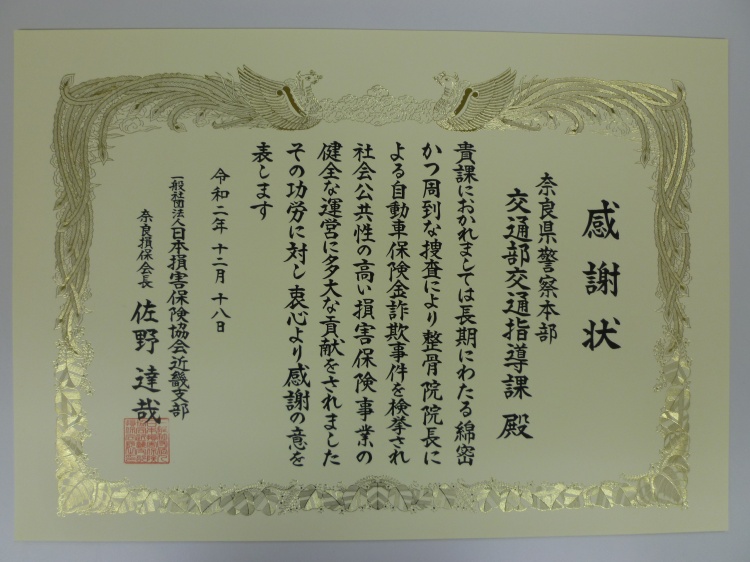 感謝状
奈良県警察本部
交通部交通指導課 殿
貴課におかれましては長期にわたる綿密
かつ周到な捜査により整骨院院長に
よる自動車保険金詐欺事件を検挙され
社会公共性の高い損害保険事業の
健全な運営に多大な貢献をされました
その功労に対し衷心より感謝の意を
表します
令和二年 十二月 十八日
一般社団法人日本損害保険協会近畿支部
奈良損保会長 佐野達哉